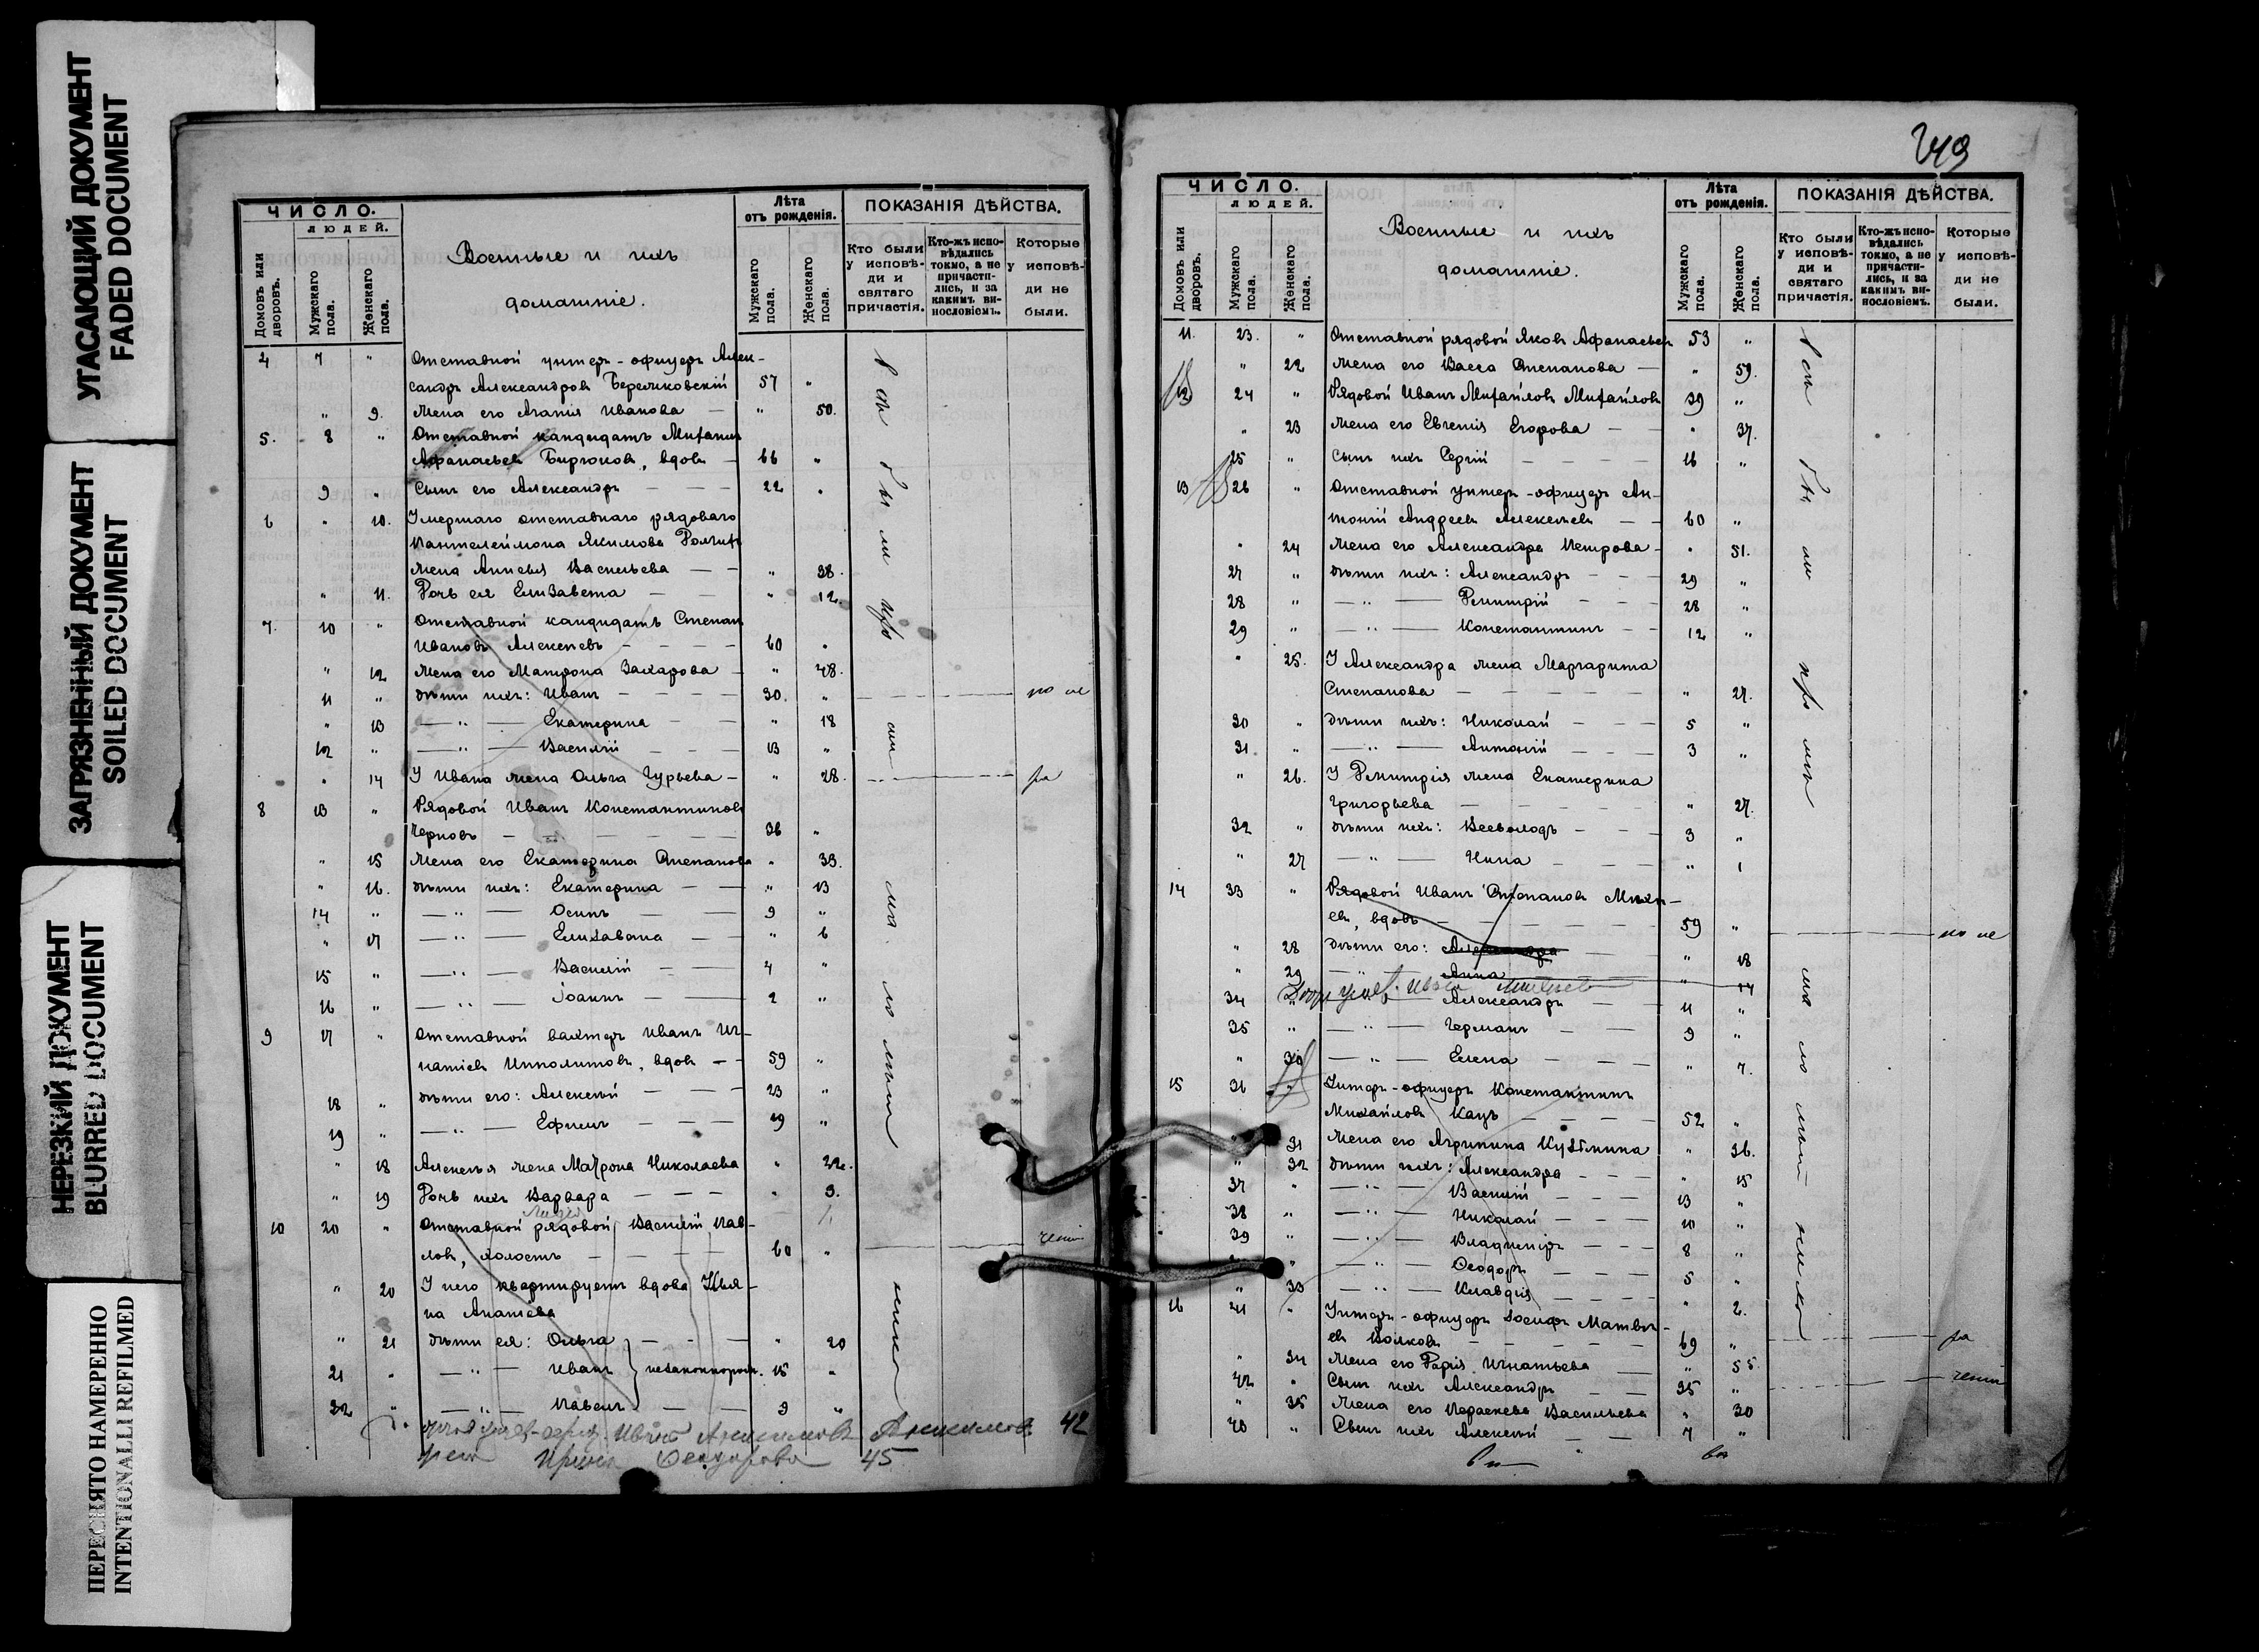 УГАСАЮЩИЙ ДОКУМЕНТ
FADED DOCUMENT
ЗАГРЯЗНЕННЫЙ ДОКУМЕНТ
SOILED DOCUMENT
НЕРЕЗКИЙ ДОКУМЕНТ
BLURRED DOCUMENT
ПЕРЕСНЯТО НАМЕРЕННО
INTENTIONALLI REFILMED
ЧИСЛО.
ЛЮДЕЙ.
Домовъ или дворовъ.
Мужскаго пола.
Женскаго пола.
Военные и ихъ
домашніе.
Лѣта
отъ рожденія.
Мужскаго пола.
Женскаго пола.
ПОКАЗАНІЯ ДѢЙСТВА.
Кто были у исповѣ-ди и святаго причастія.
Кто-жъ испо-вѣдались токмо, а не причасти-лись, и за какимъ ви-нословіемъ.
Которые у исповѣ-ди не были.
4 7 " Отставной унтеръ-офицеръ Алек-
сандръ Александровъ Бережковскій 57 "
" 9. Жена его Агапія Иванова — " 50.
5. 8 " Отставной кандидатъ Михаилъ
Афанасьевъ Бирюковъ, вдовъ — 66 "
9 " Сынъ его Александръ — — — 22 "
6 " 10. Умершаго отставнаго рядоваго
Пантелеймона Якимова
жена Анисья Васильева — — " 38.
" 11. Дочь ея Елизавета — — " 12.
7. 10 " Отставной кандидатъ Степанъ
Ивановъ Алексѣевъ — — — — 60 "
" 12 Жена его Матрона Захарова — " 48.
11 " дѣти ихъ: Иванъ — — — — 30. " по не
" 13 — " — Екатерина — — " 18
12 " — " — Василій — — — 13 "
" 14 У Ивана жена Ольга Гурьева — " 28.
8 13 " Рядовой Иванъ Константиновъ
Черновъ — — — — — 36 "
" 15 Жена его Екатерина Степанова " 33.
" 16. дѣти ихъ: Екатерина — — " 13
14 " — " — Осипъ — — 9 "
" 17 — " — Елизавета — — " 6
15 " — " — Василій — — 4 "
16 " — " — Іоаннъ — — 2 "
9 17 " Отставной вахтеръ Иванъ Иг-
натіевъ Ипполитовъ, вдовъ — — 59 "
18 " дѣти его: Алексѣй — — — 23 "
19 " — " — Ефимъ — — — 19 "
" 18 Алексѣя жена Матрона Николаева " 22.
" 19 Дочь ихъ Варвара — — — " 3.
10 20 " Отставной рядовой Василій Пав-
ловъ, холостъ — — — — 60 "
" 20 У него квартируетъ вдова
на
" 21 дѣти ея: Ольга — — — " 20
21 " — " — Иванъ } незаконнорож. 15 "
22 " — " — Павелъ — — 9 "
Иванъ Акимовъ Акимовъ 42
жена Ирина Ѳеодорова 45
249
ЧИСЛО.
ЛЮДЕЙ.
Домовъ или дворовъ.
Мужскаго пола.
Женскаго пола.
Военные и ихъ
домашніе.
Лѣта
отъ рожденія.
Мужскаго пола.
Женскаго пола.
ПОКАЗАНІЯ ДѢЙСТВА.
Кто были у исповѣ-ди и святаго причастія.
Кто-жъ испо-вѣдались токмо, а не причасти-лись, и за какимъ ви-нословіемъ.
Которые у исповѣ-ди не были.
11. 23. " Отставной рядовой Яковъ Афанасьевъ 53 "
" 22 Жена его Васса Степанова — " 59.
12 24 " Рядовой Иванъ Михайловъ Михайловъ 39 "
" 23 Жена его Евгенія Егорова — — " 37.
25 " Сынъ ихъ Сергій — — — — 16 "
13 26 " Отставной унтеръ-офицеръ Ан-
тоній Андреевъ Алексѣевъ — — 60 "
" 24 Жена его Александра Петрова — " 51.
27 " дѣти ихъ: Александръ — — — 29 "
28 " — " — Димитрій — — — 28 "
29 " — " — Константинъ — — 12 "
" 25. У Александра жена Маргарита
Степанова — — — — — — " 27.
30 " дѣти ихъ: Николай — — — 5 "
31 " — " — Антоній — — — 3 "
" 26. У Димитрія жена Екатерина
Григорьева — — — — — " 27.
32 " дѣти ихъ: Всеволодъ — — — 3 "
" 27 — " — Нина — — — " 1
14 33 " Рядовой Иванъ Степановъ Михѣ-
евъ, вдовъ — — — — — 59 " по не
" 28 дѣти его: Александра — — " 18
" 29 — " — Анна " 14
34 " Александръ — — 11 "
35 " — " — Германъ — — 9 "
" 30 — " — Елена — — " 7.
15 36 " Унтеръ-офицеръ Константинъ
Михайловъ Кацъ — — — 52 "
" 31 Жена его Агрипина Кузьмина " 36.
" 32 дѣти ихъ: Александра — — — " 15
37 " — " — Василій — — — 13 "
38 " — " — Николай — — — 10 "
39 " — " — Владиміръ — — — 8 "
" — " — Ѳеодоръ — — — 5 "
" 33 — " — Клавдія — — — " 2.
16 41 " Унтеръ-офицеръ Іосифъ Матвѣ-
евъ Волковъ — — — — 69 "
" 34 Жена его Дарія Игнатьева — " 55.
42 " Сынъ ихъ Александръ — — 35 "
" 35 Жена его Параскева Васильева " 30
43 " Сынъ ихъ Алексѣй — — 7 "